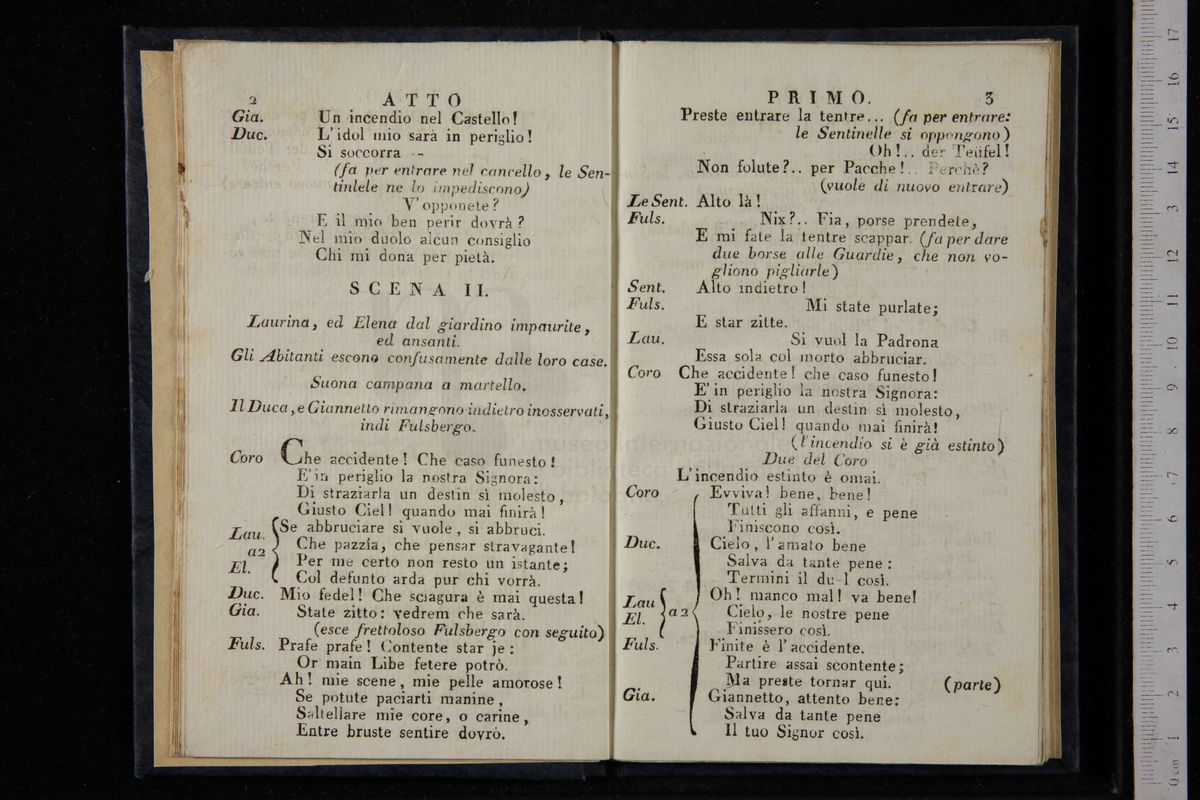 2 ATTO
Gia. Un incendio nel Castello!
Duc. L'idol mio sarà in periglio!
Si soccorra --
(fa per entrare nel cancello, le Sen-
tinlele ne lo impediscono)
V'opponete?
E il mio ben perir dovrà?
Nel mio duolo alcun consiglio
Chi mi dona per pietà.
SCENA II.
Laurina, ed Elena dal giardino impaurite,
ed ansanti.
Gli Abitanti escono confusamente dalle loro case.
Suona campana a martello.
Il Duca, e Giannetto rimangono indietro inosservati,
indi Fulsbergo.
Coro Che accidente! Che caso funesto!
E'in periglio la nostra Signora:
Di straziarla un destin sì molesto,
Giusto Ciel! quando mai finirà!
Lau. Se abbruciare si vuole, si abbruci.
a2 Che pazzía, che pensar stravagante!
El. Per me certo non resto un istante;
Col defunto arda pur chi vorrà.
Duc. Mio fedel! Che sciagura è mai questa!
Gia. State zitto: vedrem che sarà.
(esce frettoloso Fulsbergo con seguito)
Fuls. Prafe prafe! Contente star je:
Or main Libe fetere potrò.
Ah! mie scene, mie pelle amorose!
Se potute paciarti manine,
Saltellare mie core, o carine,
Entre bruste sentire dovrò.
PRIMO. 3
Preste entrare la tentre... (fa per entrare:
le Sentinelle si oppongono)
Oh!.. der Teüfel!
Non folute?.. per Pacche!.. Perchè?
(vuole di nuovo entrare)
Le Sent. Alto là!
Fuls. Nix?.. Fia, porse prendete,
E mi fate la tentre scappar. (fa per dare
due borse alle Guardie, che non vo-
gliono pigliarle)
Sent. Alto indietro!
Fuls. Mi state purlate;
E star zitte.
Lau. Si vuol la Padrona
Essa sola col morto abbruciar.
Coro Che accidente! che caso funesto!
E' in periglio la nostra Signora:
Di straziarla un destin sì molesto,
Giusto Ciel! quando mai finirà!
(l'incendio si è già estinto)
Due del Coro
L'incendio estinto è omai.
Coro Evviva! bene, bene!
Tutti gli affanni, e pene
Finiscono così.
Duc. Cielo, l'amato bene
Salva da tante pene:
Termini il du l così.
Lau Oh! manco mal! va bene!
El. a2 Cielo, le nostre pene
Finissero così.
Fuls. Finite è l'accidente.
Partire assai scontente;
Ma preste tornar qui. (parte)
Gia. Giannetto, attento bene:
Salva da tante pene
Il tuo Signor così.
0 cm 1 2 3 4 5 6 7 8 9 10 11 12 13 14 15 16 17